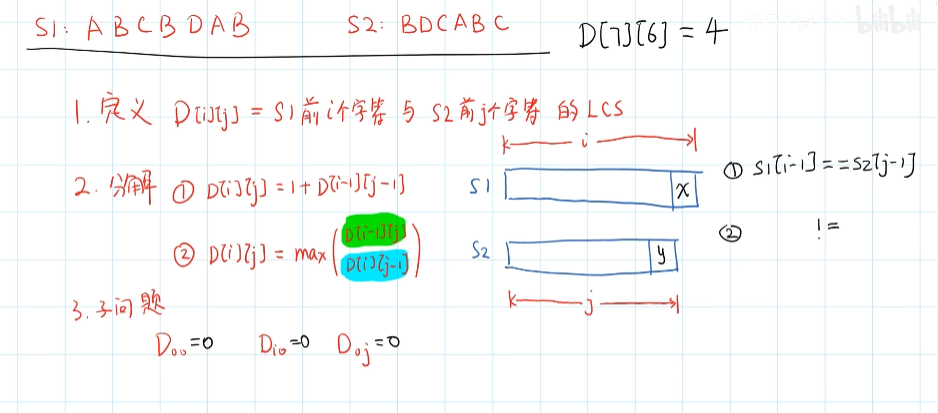 S1: ABCBDAB S2: BDCABC D[7][6] = 4
bilibili
1. 定义 D[i][j] = S1前i个字符 与 S2前j个字符 的LCS
i
① S1[i-1]==S2[j-1]
2. 分解 ① D[i][j] = 1 + D[i-1][j-1]
S1 x
② !=
② D[i][j] = max( D[i-1][j] D[i][j-1] )
S2 y
j
3. 子问题
D₀₀=0 Dᵢ₀=0 D₀ⱼ=0